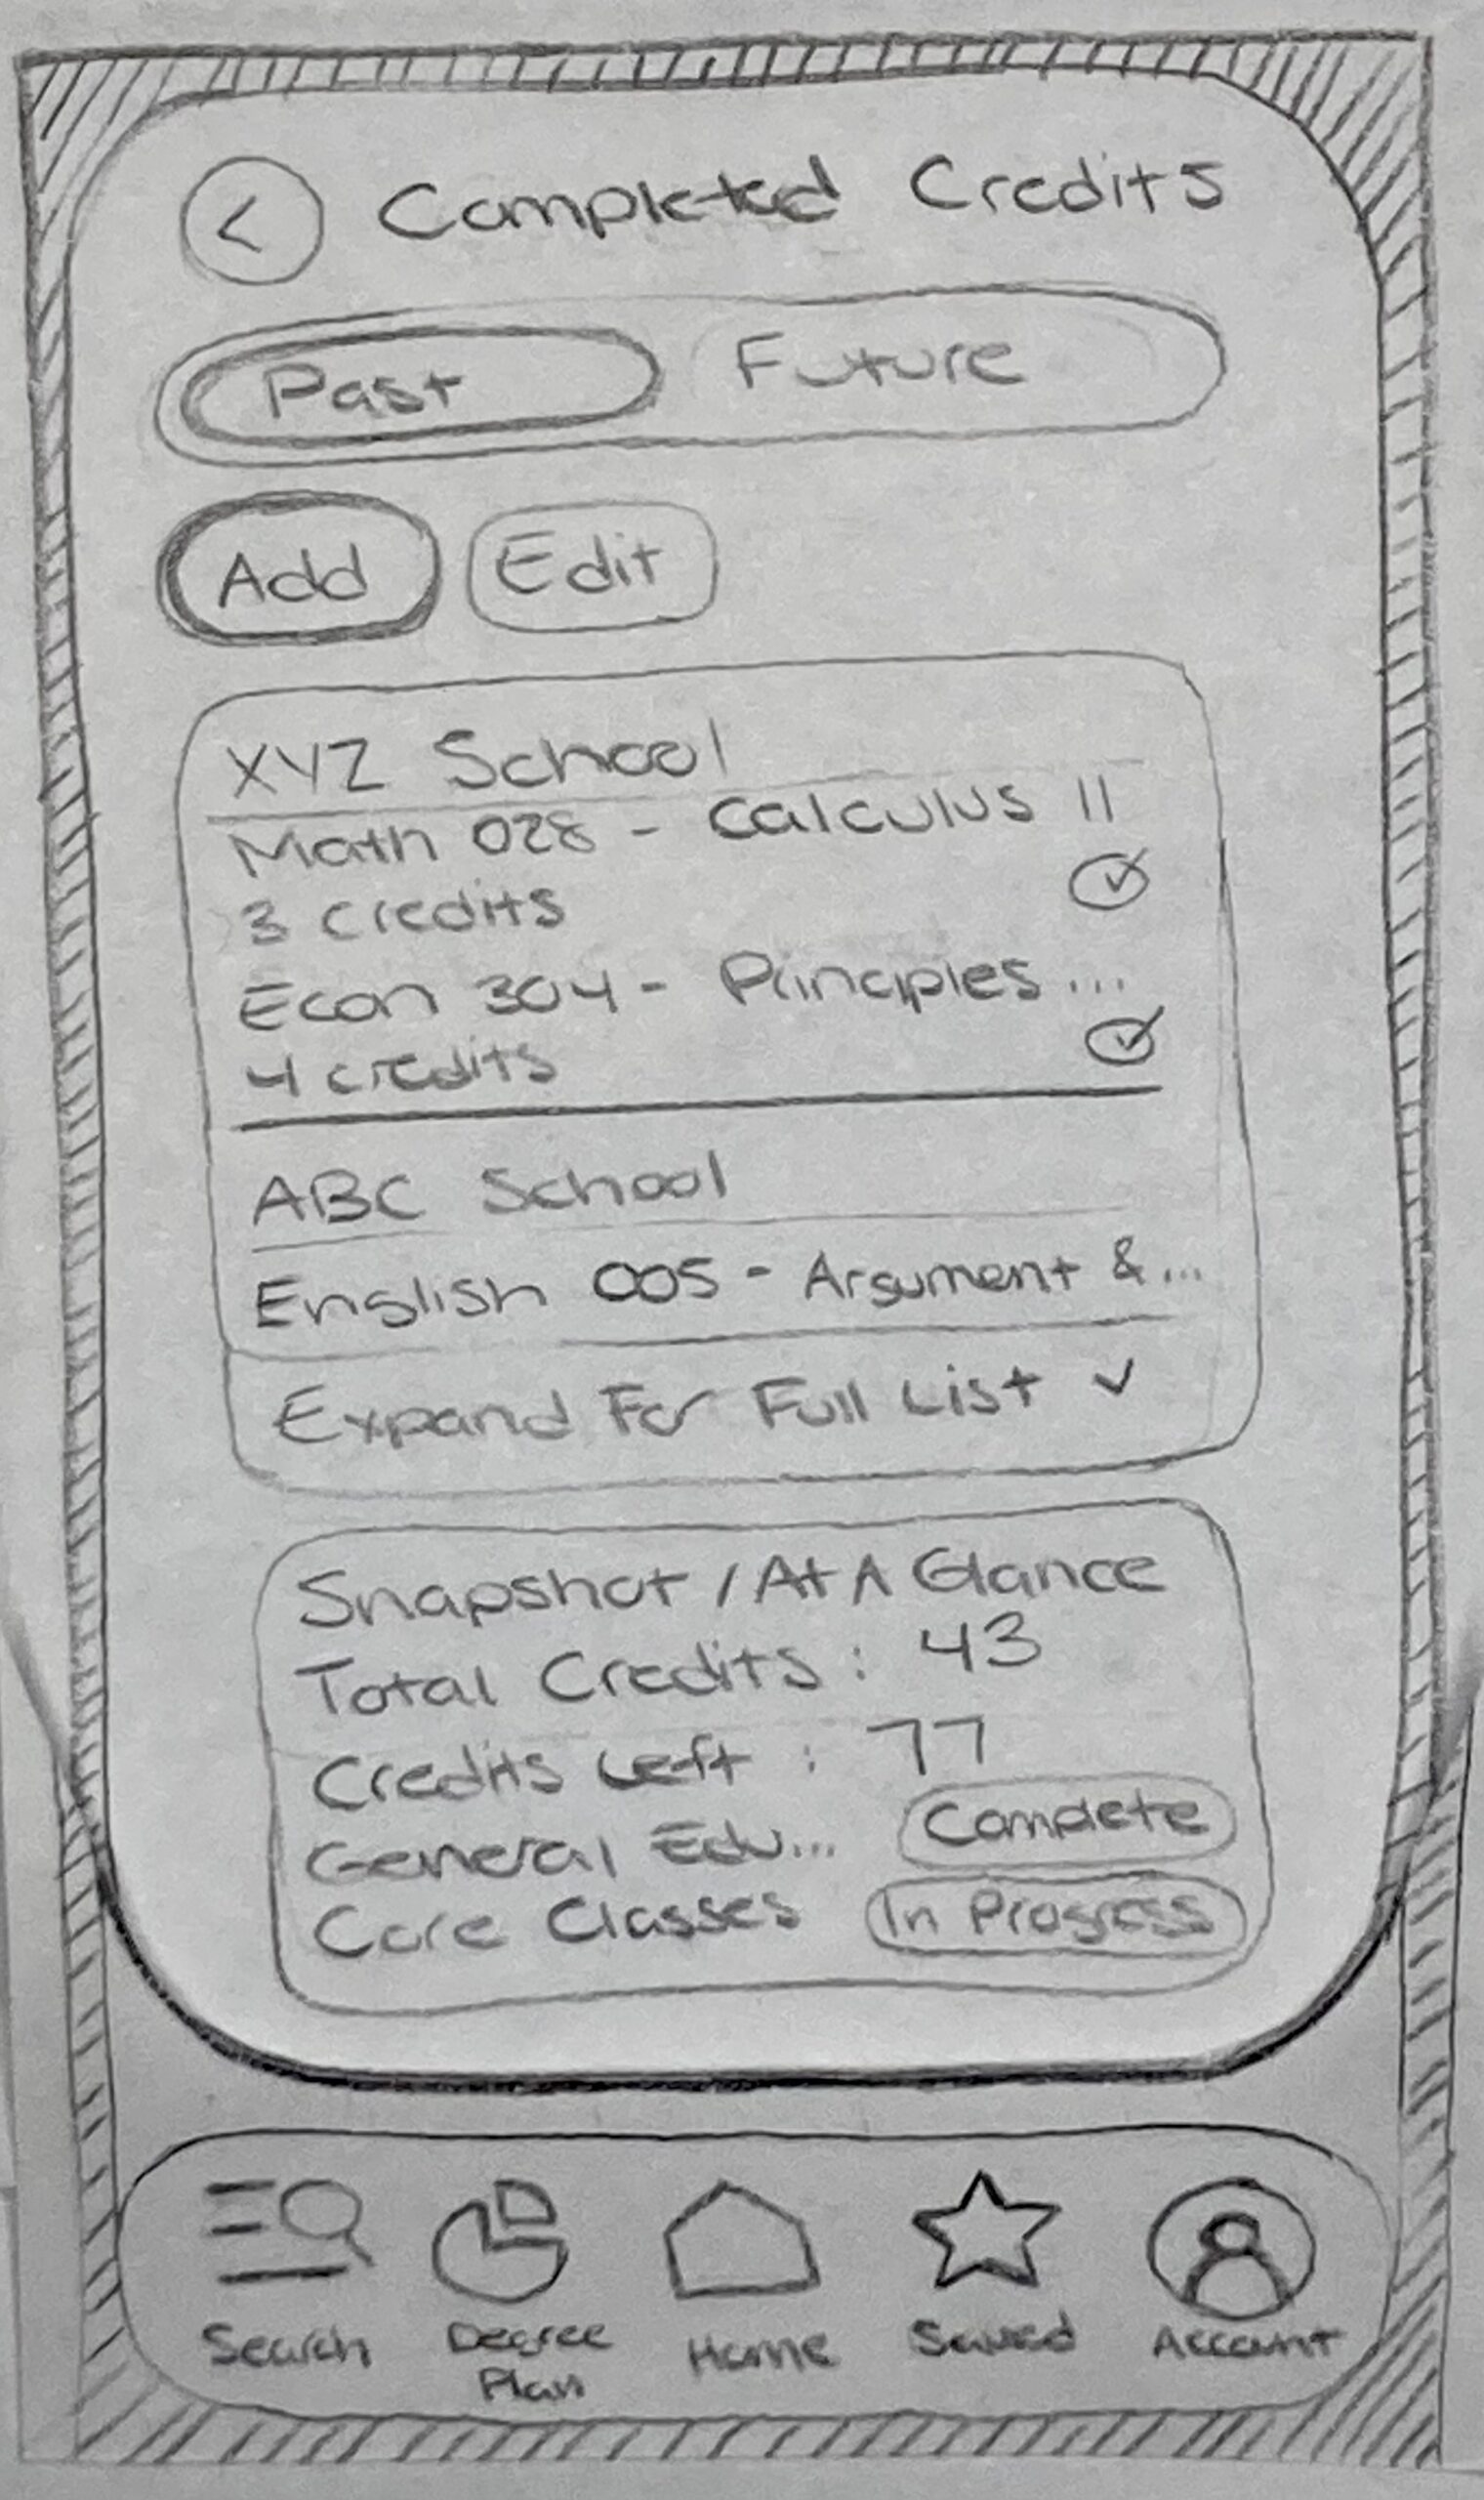 < Completed Credits
Past Future
Add Edit
XYZ School
Math 028 - Calculus II
3 credits
Econ 304 - Principles ...
4 credits
ABC School
English 005 - Argument & ...
Expand For Full List
Snapshot / At A Glance
Total Credits : 43
Credits Left : 77
General Edu... Complete
Core Classes In Progress
Search Degree Plan Home Saved Account